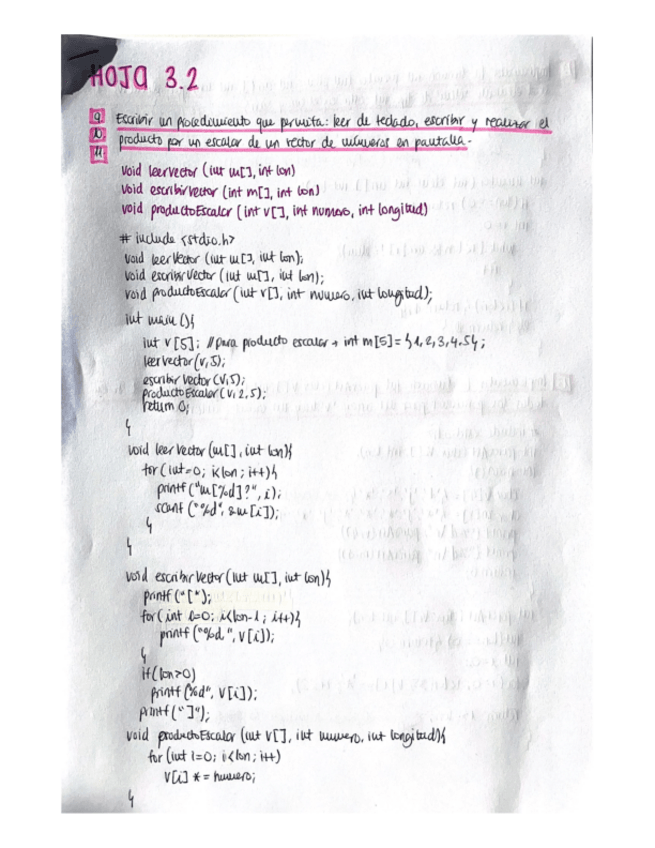 HOJA 3.2
9 Escribir un procedimiento que permita: leer de teclado, escribir y realizar el
10 producto por un escalar de un vector de números en pantalla.
11
void leervector (int m[], int lon)
void escribirvector (int m[], int lon)
void productoEscalar (int v[], int numero, int longitud)
# include <stdio.h>
void leerVector (int m[], int lon);
void escribirVector (int m[], int lon);
void productoEscalar (int v[], int numero, int longitud);
int main (){
int v[5]; //para producto escalar → int m[5]={1,2,3,4,5};
leerVector(v,5);
escribirVector(v,5);
productoEscalar(v,2,5);
return 0;
}
void leerVector (m[], int lon){
for (int=0; i<lon; i++){
printf ("m[%d]?", i);
scanf ("%d", &m[i]);
}
}
void escribirVector (int m[], int lon){
printf ("[");
for (int i=0; i<lon-1; i++){
printf ("%d,", v[i]);
}
if (lon>0)
printf ("%d", v[i]);
printf ("]");
void productoEscalar (int v[], int numero, int longitud){
for (int i=0; i<lon; i++)
v[i] *= numero;
}